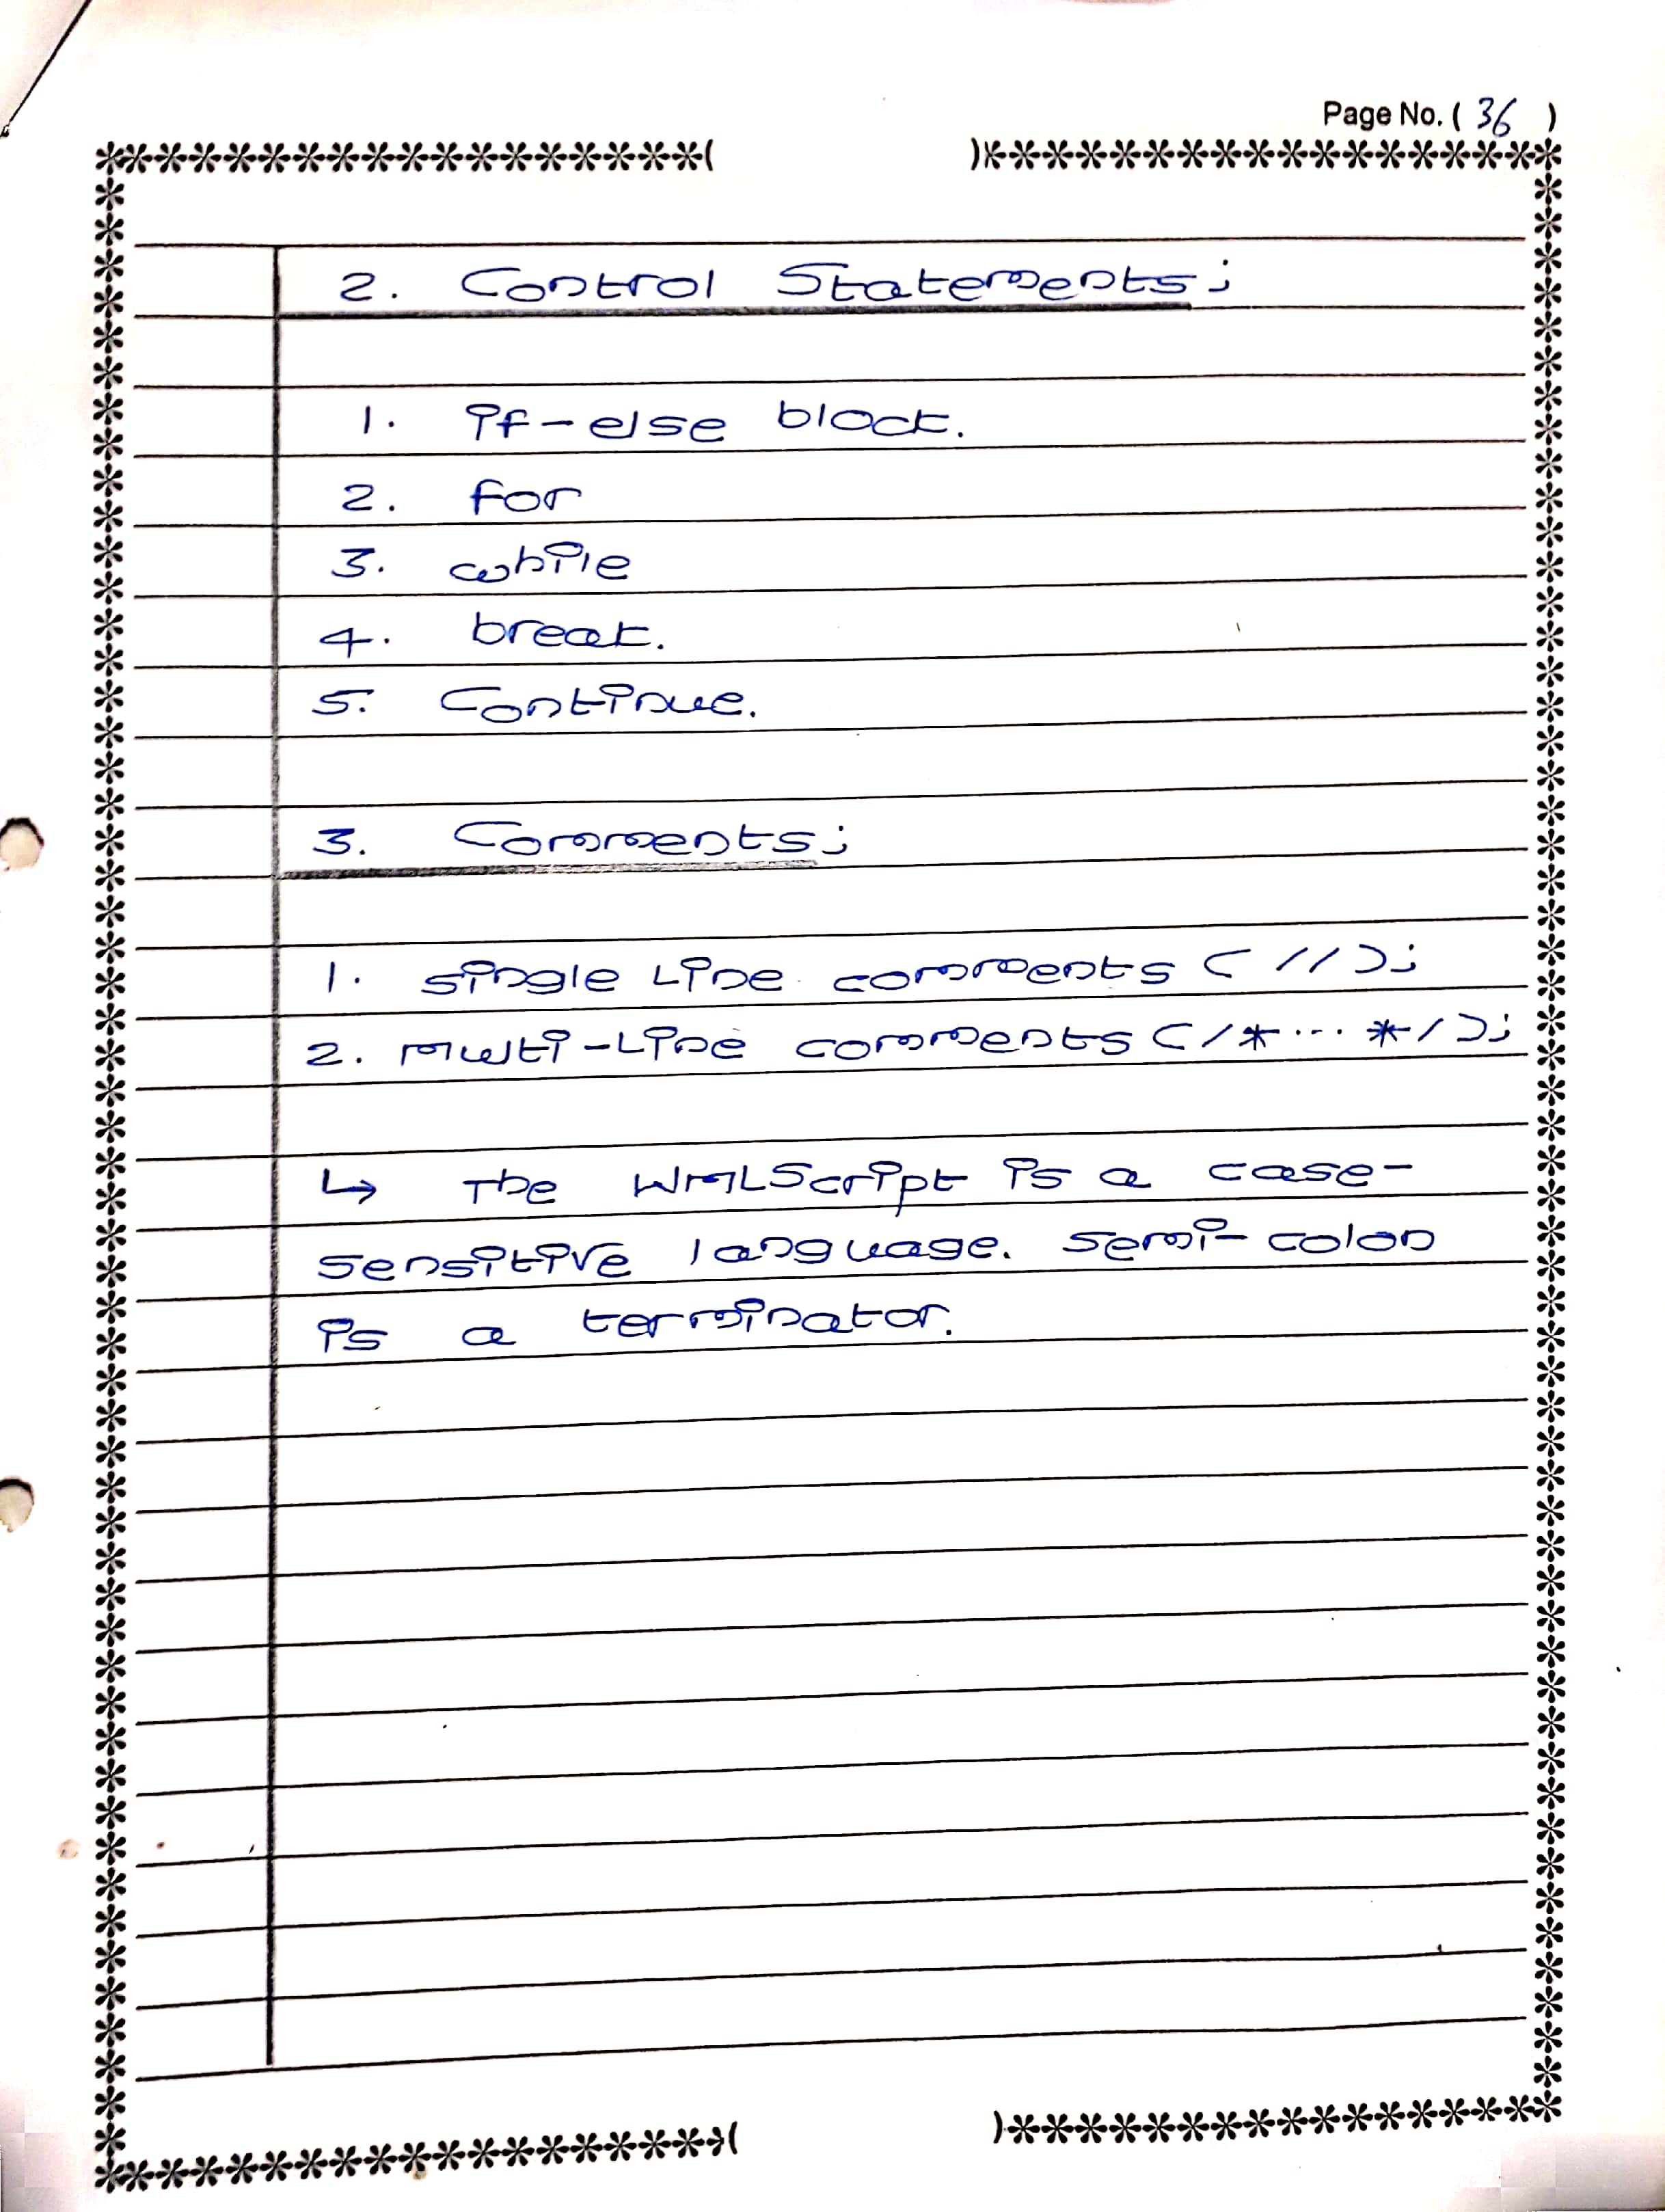 Page No. ( 36 )
2. Control Statements;
1. if-else block.
2. for
3. while
4. break.
5. Continue.
3. Comments;
1. single Line comments ( // );
2. Multi-Line comments ( /* ... */ );
↳ The WMLScript is a case-
sensitive language. semi-colon
is a terminator.